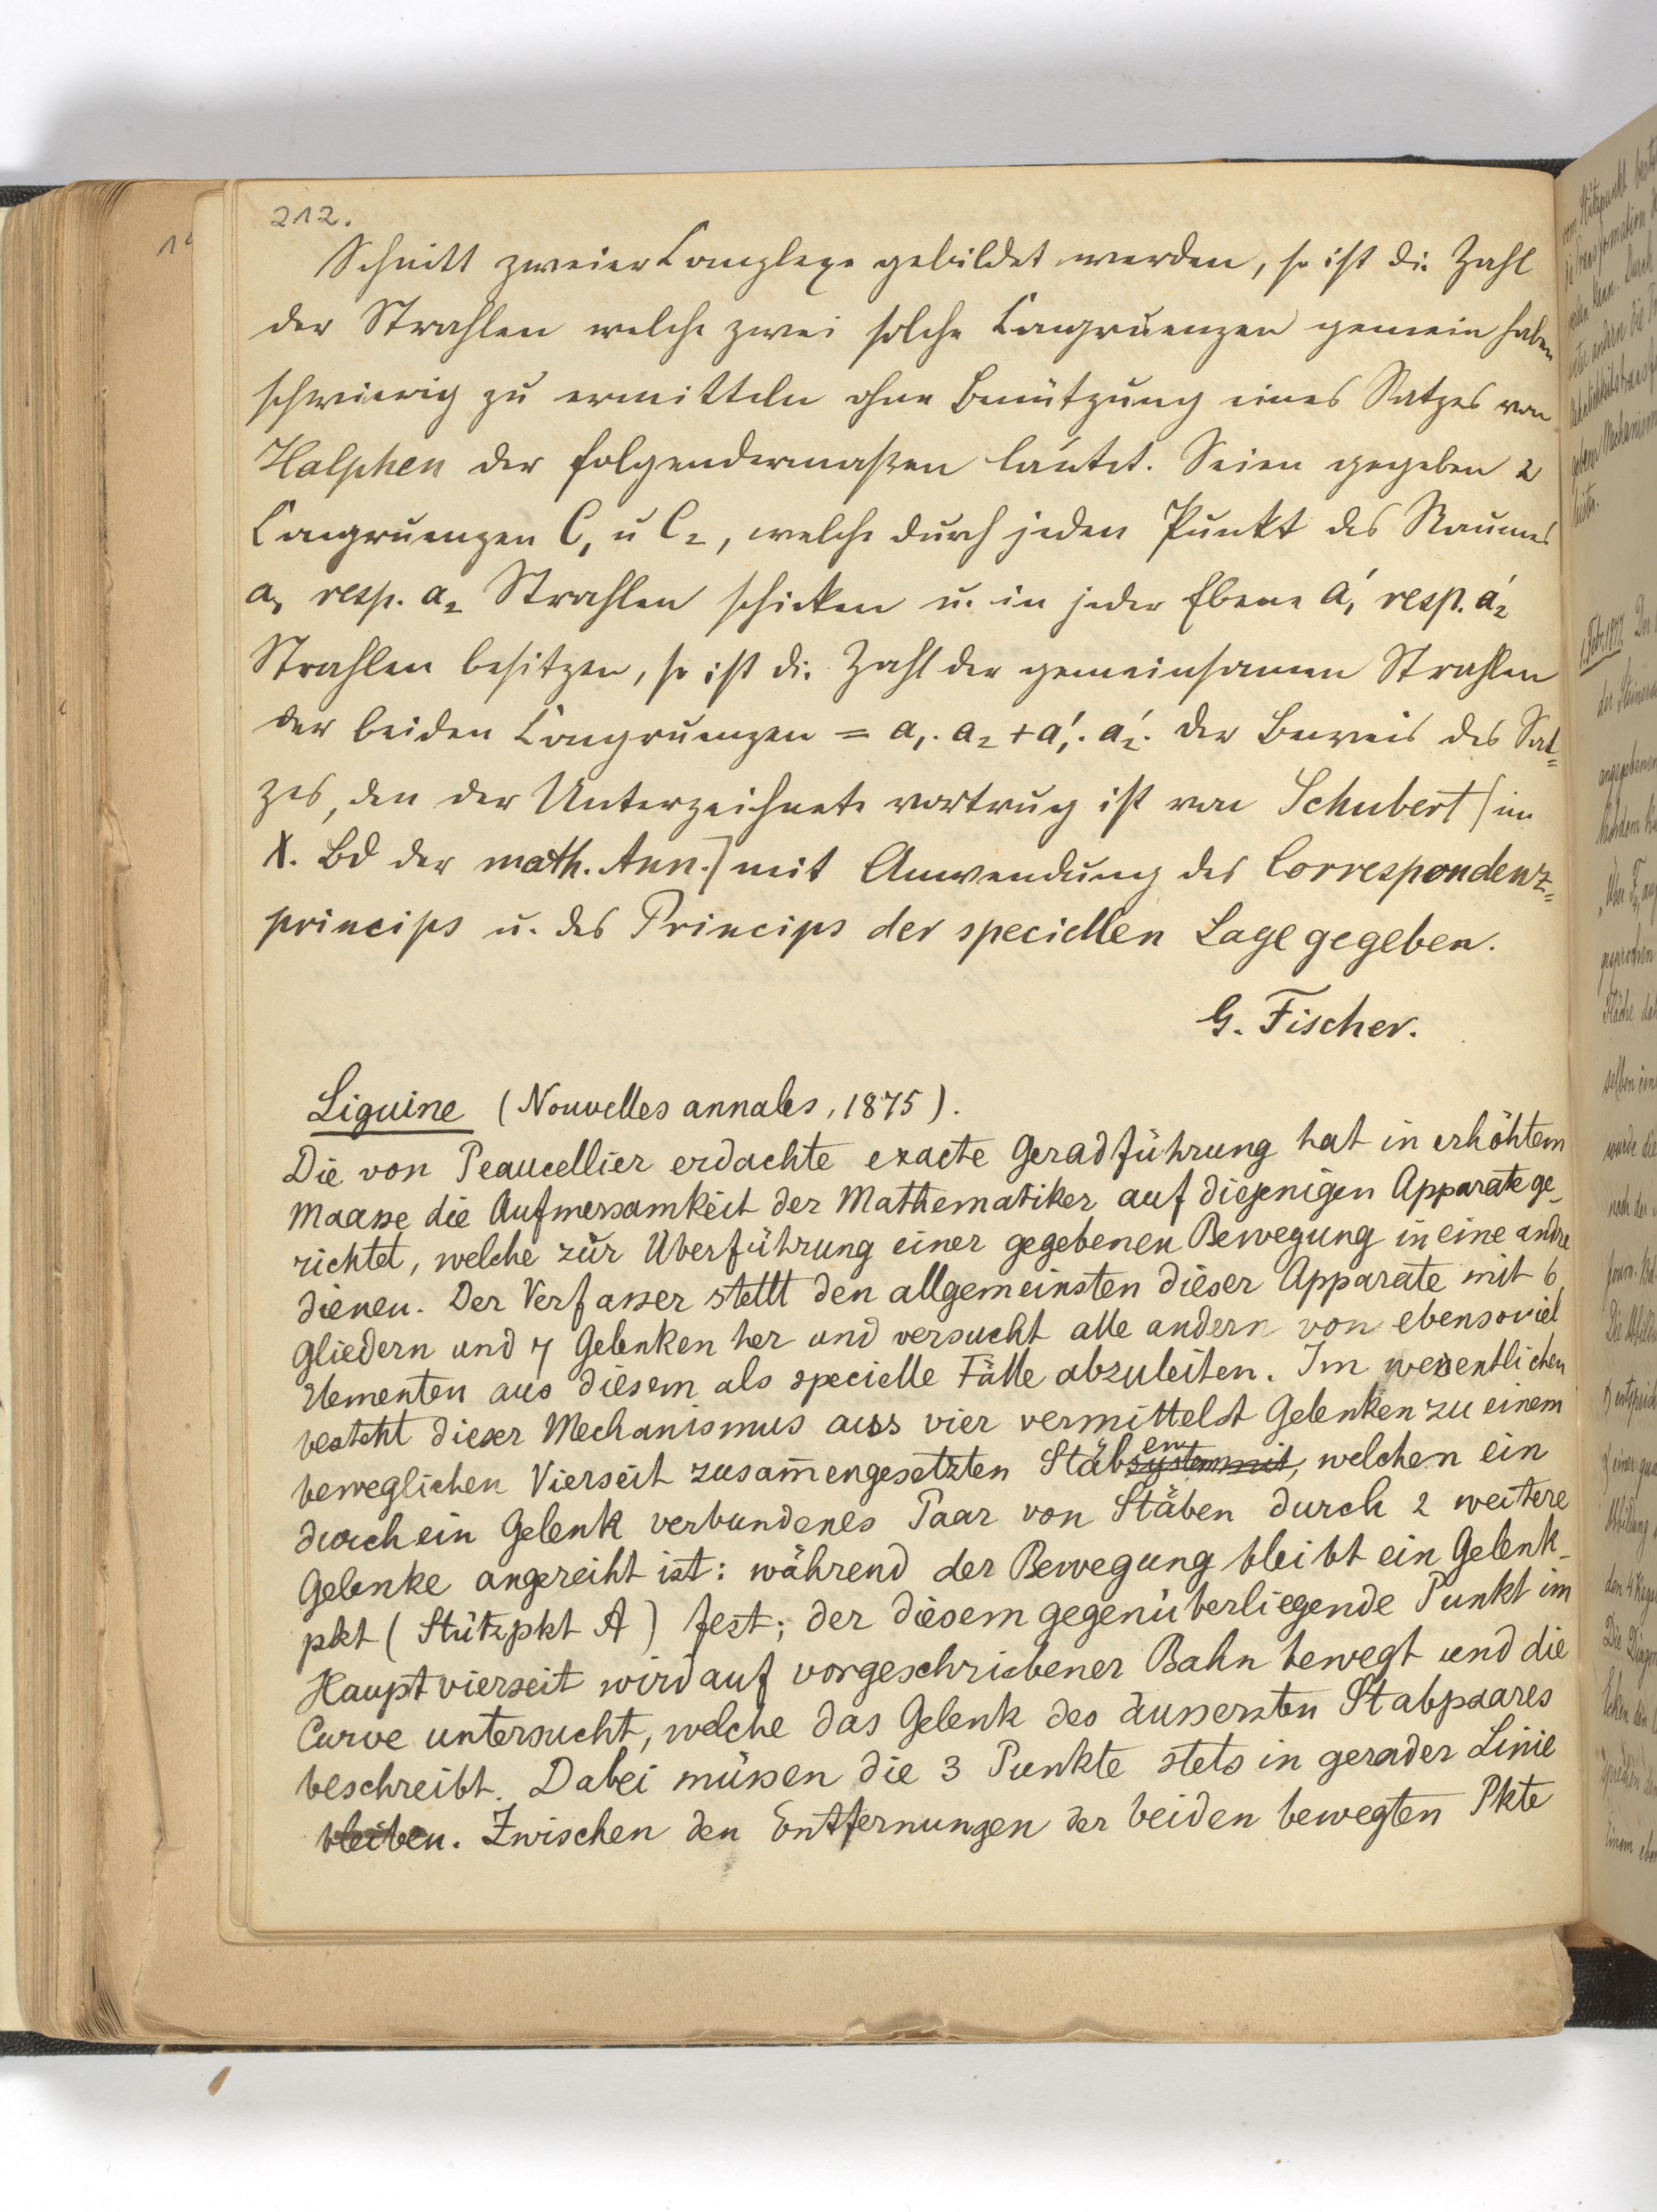 212.
Schnitt zweier Complexe gebildet werden, so ist die Zahl
der Strahlen welche zwei solche Congruenzen gemein haben
schwierig zu ermitteln ohne Benützung eines Satzes von
Halphen der folgendermaßen lautet. Seien gegeben 2
Congruenzen C₁ u C₂, welche durch jeden Punkt des Raumes
a₁ resp. a₂ Strahlen schicken u. in jeder Ebene a₁' resp. a₂'
Strahlen besitzen, so ist die Zahl der gemeinsamen Strahlen
der beiden Congruenzen = a₁. a₂ + a₁'. a₂'. Der Beweis des Sat=
zes, den der Unterzeichnete vortrug ist von Schubert (im
X. Bd der math. Ann.) mit Anwendung des Correspondenz=
princips u. des Princips der speciellen Lage gegeben.
G. Fischer.
Liguine (Nouvelles annales, 1875).
Die von Peaucellier erdachte exacte Geradführung hat in erhöhtem
Maasse die Aufmersamkeit der Mathematiker auf diejenigen Apparate ge-
richtet, welche zur Überführung einer gegebenen Bewegung in eine andre
dienen. Der Verfasser stellt den allgemeinsten dieser Apparate mit 6
Gliedern und 7 Gelenken her und versucht alle andern von ebensoviel
Elementen aus diesem als specielle Fälle abzuleiten. Im wesentlichen
besteht dieser Mechanismus aus vier vermittelst Gelenken zu einem
beweglichen Vierseit zusam̅engesetzten Stäbsystem mit en, welchen ein
durch ein Gelenk verbundenes Paar von Stäben durch 2 weitere
Gelenke angereiht ist: während der Bewegung bleibt ein Gelenk-
pkt (Stützpkt A) fest; der diesem gegenüberliegende Punkt im
Hauptvierseit wird auf vorgeschriebener Bahn bewegt und die
Curve untersucht, welche das Gelenk des äussersten Stabpaares
beschreibt. Dabei müssen die 3 Punkte stets in gerader Linie
bleiben. Zwischen den Entfernungen der beiden bewegten Pkte